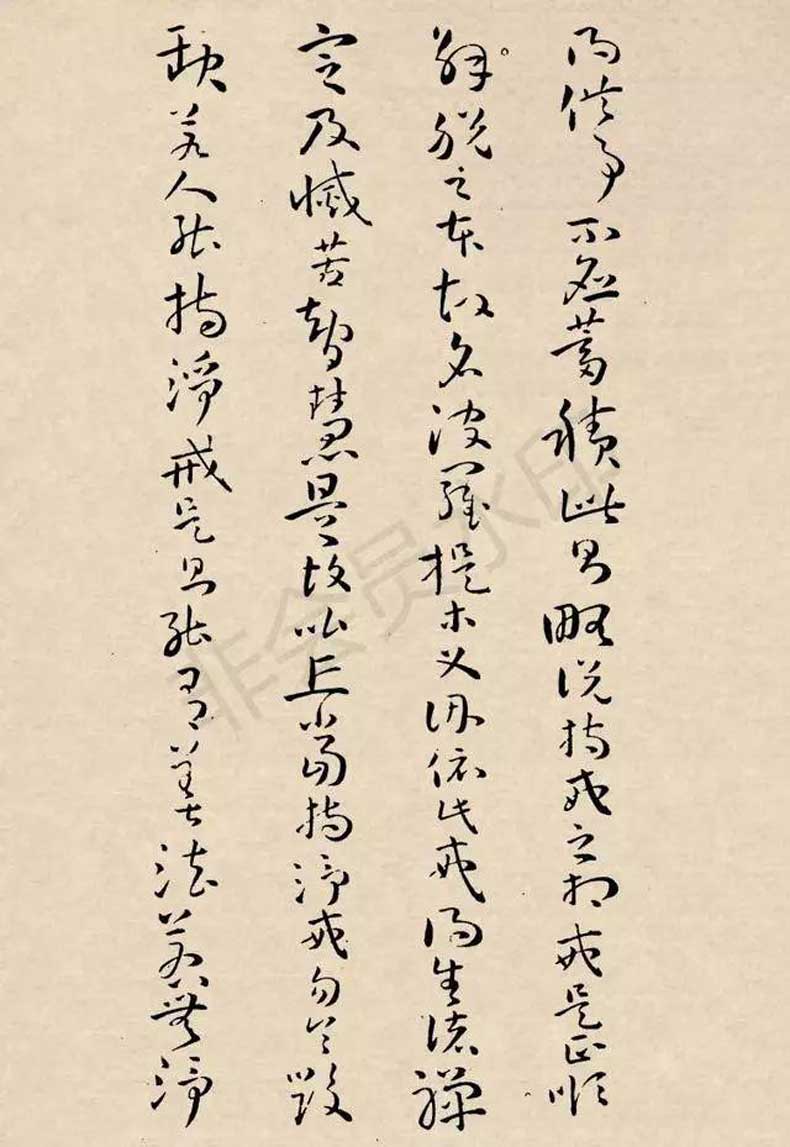 得供事不應蓄積此則略説持戒之相戒是正順
解脱之本故名波羅提木叉因依此戒得生諸禪
定及滅苦智慧是故比丘當持淨戒勿令毀
缺若人能持淨戒是則能有善法若無淨
非会员水印